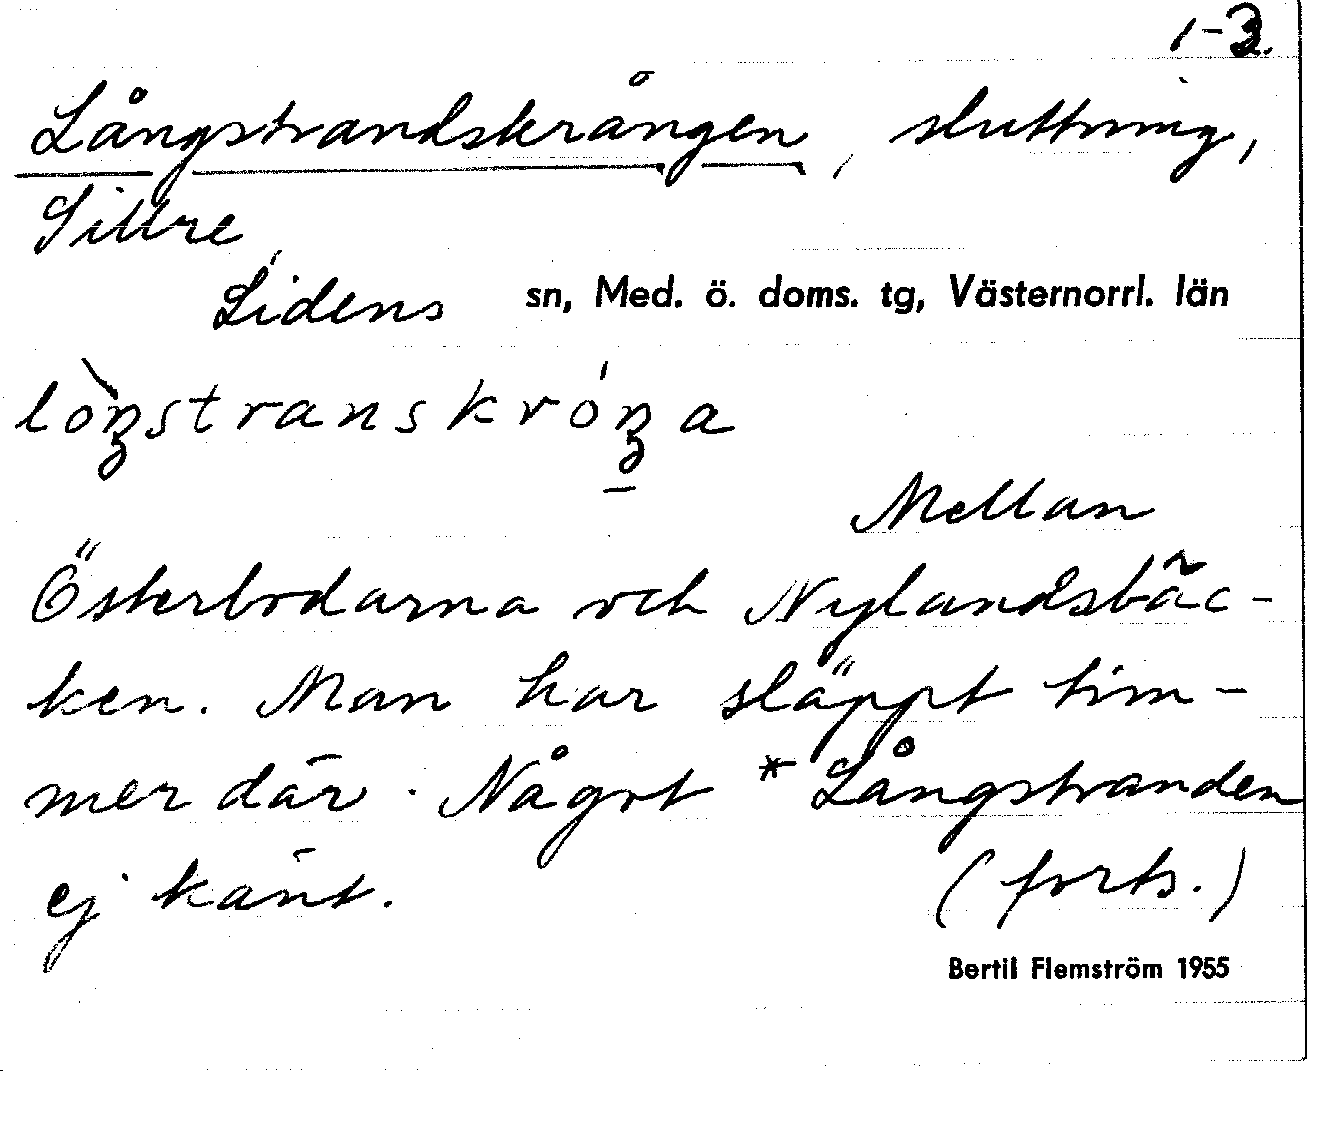 1-3.
Långstrandskrången, sluttning,
Sillre,
Lidens sn, Med. ö. doms. tg, Västernorrl. län
lòŋstranskróŋa
Mellan
Österbodarna och Nylandsbäc-
ken. Man har släppt tim-
mer där. Något *Långstranden
ej känt. (forts.)
Bertil Flemström 1955